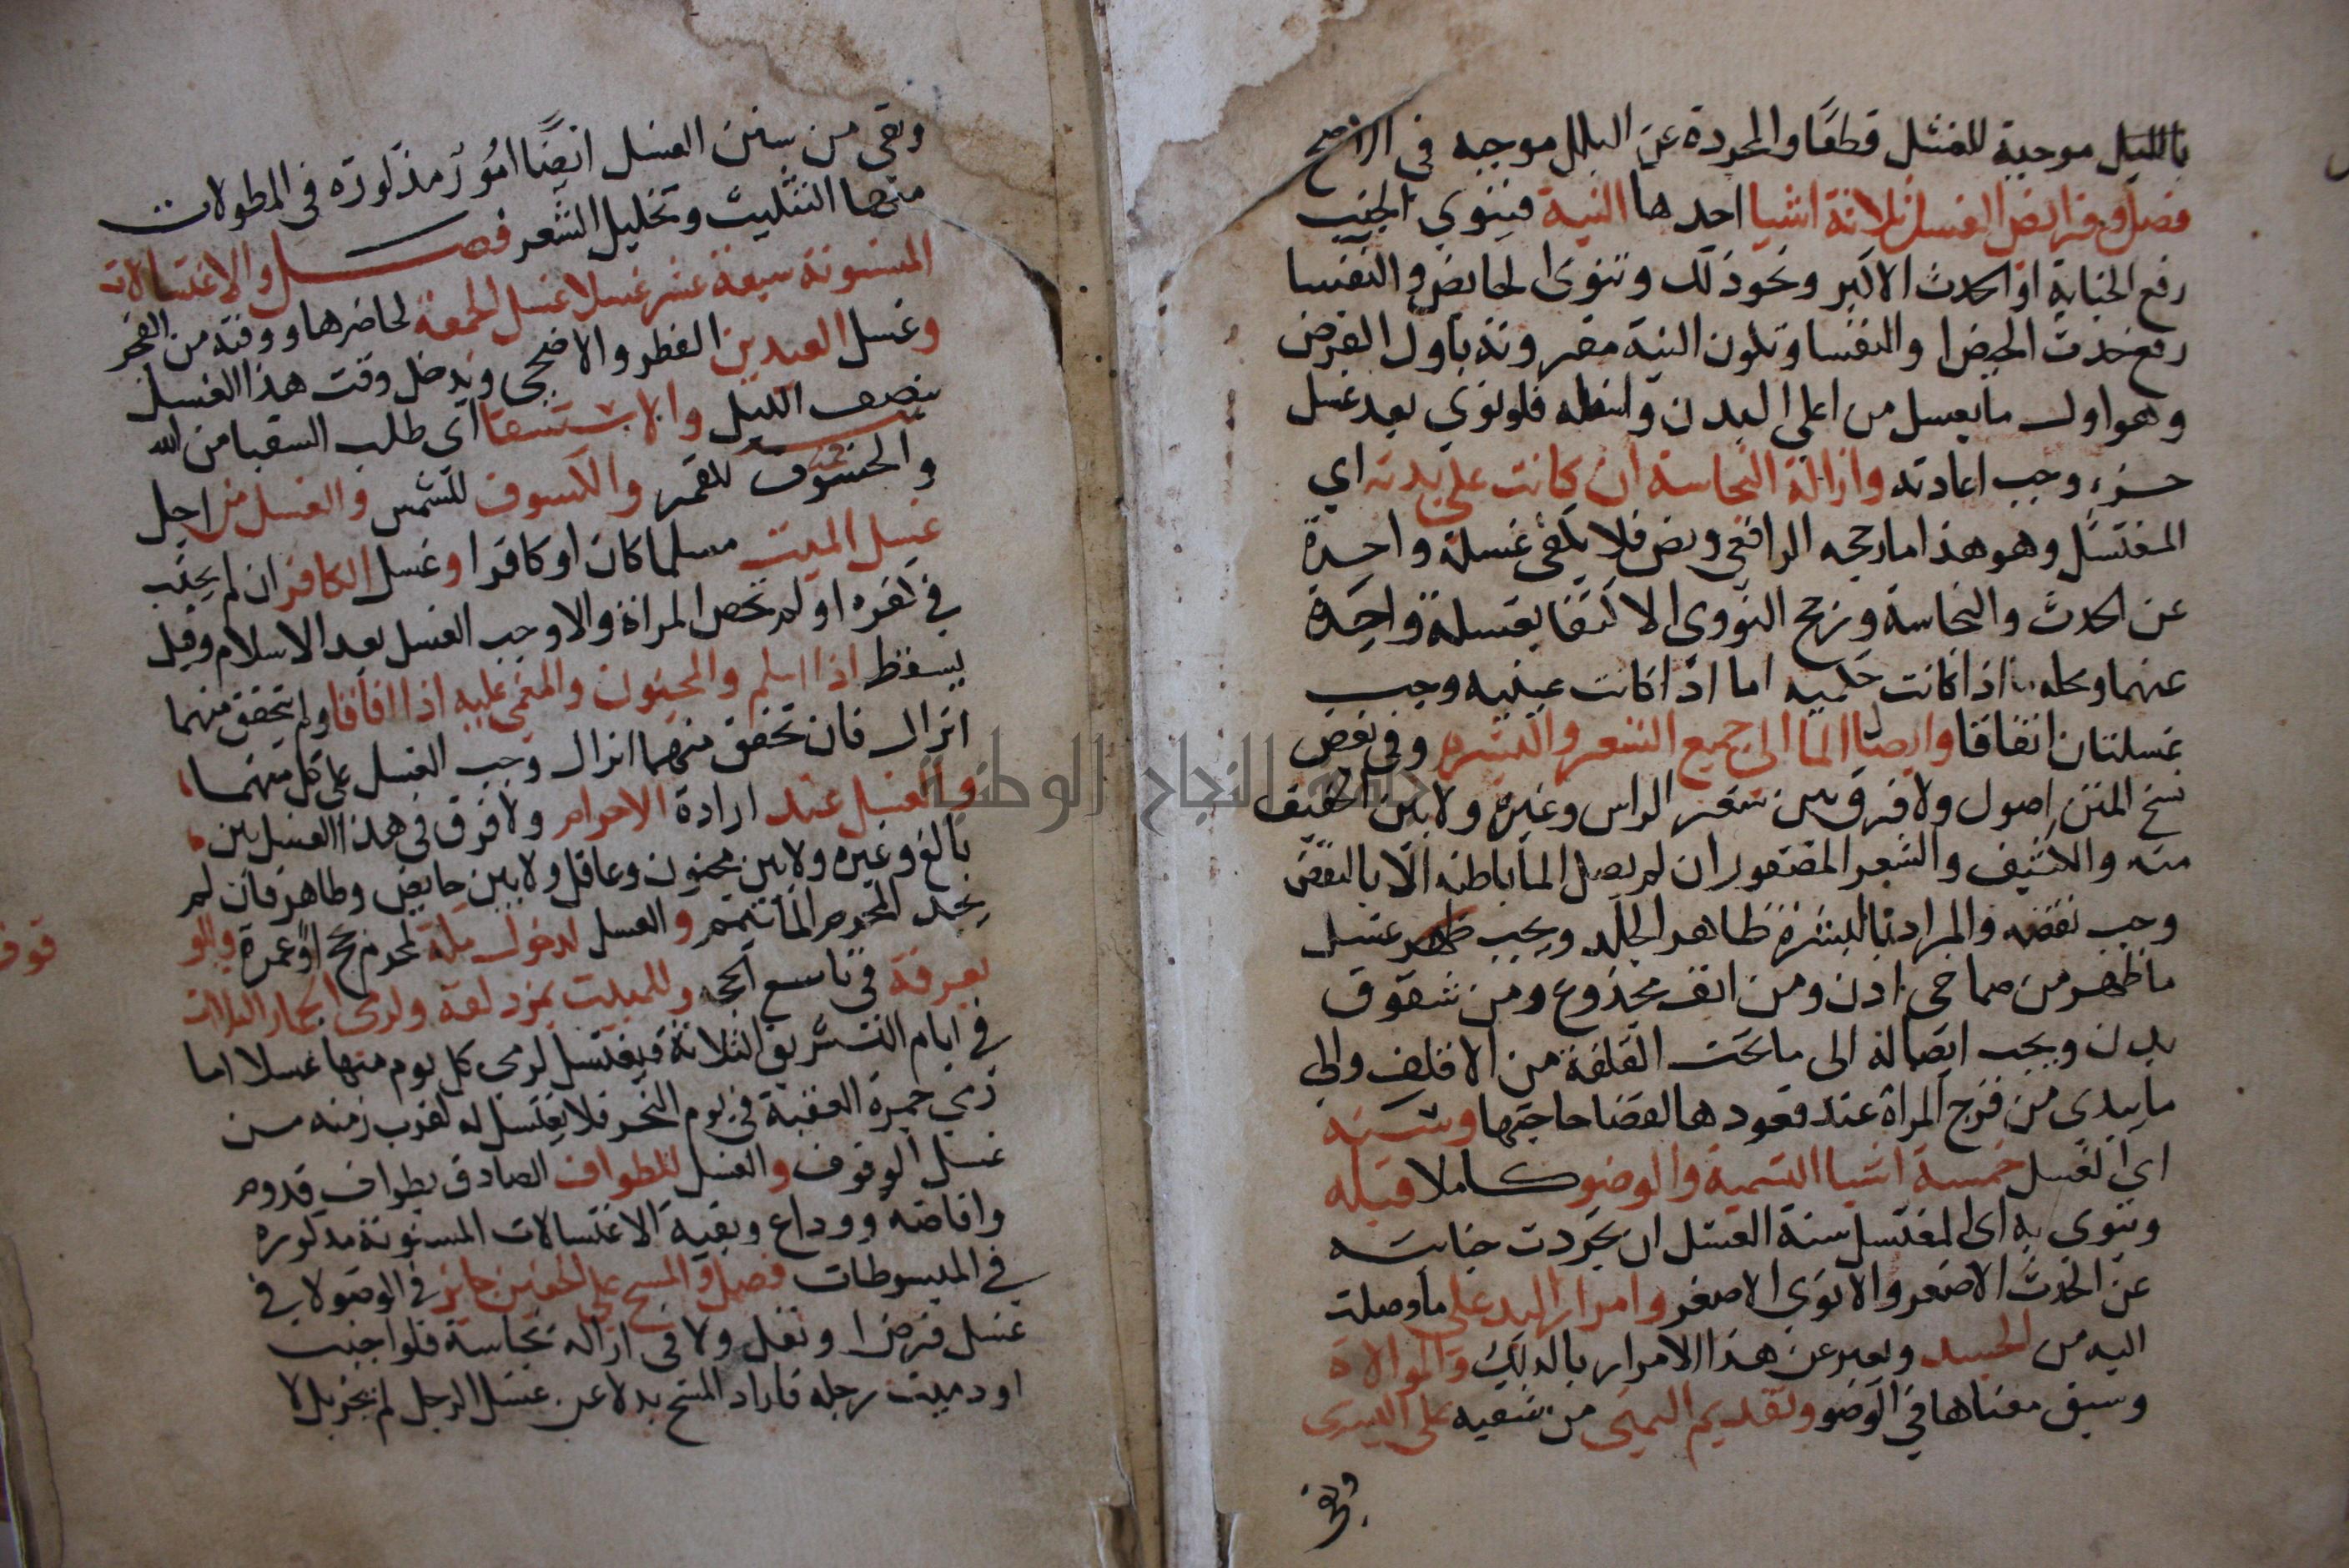 بالبلل موجبة للغسل قطعًا والمجردة عن البلل موجبه في الاصح
فصل وفرايض الغسل ثلاثة اشيا احدها النية فينوي الجنب
رفع الجنابة او الحدث الاكبر ونحو ذلك وتنوى الحايض والنفسا
رفع حدث الحيض او النفسا وتكون النية مقرونة باول الفرض
وهو اول ما يغسل من اعلى البدن واسفله فلو نوي بعد غسل
جزء وجب اعادته وازالة النجاسة ان كانت على بدنه اي
المغتسل وهو هذا ما رجحه الرافعي وبض فلا يكفي غسلة واحدة
عن الحدث والنجاسة ورجح النووي الاكتفا بغسلة واحدة
عنهما ومحله اذا كانت حكميه اما اذا كانت عينيه وجب
غسلتان اتفاقا وايصال الما الى جميع الشعر والبشره وفي بعض
نسخ المتن اصول ولا فرق بين شعر الراس وغيره ولا بين الخفيف
منه والكثيف والشعر المضفور ان لم يصل الما باطنه الا بالنقض
وجب نقضه والمراد بالبشرة ظاهر الجلد ويجب غسل
ما ظهر من صماخى اذن ومن انف مجذوع ومن شقوق
بدن ويجب ايصاله الى ما تحت القلفة من الاقلف والى
ما يبدى من فرج المراة عند قعودها لقضا حاجتها وسننه
اي الغسل خمسة اشيا التسمية والوضو كاملا قبله
وينوى به اى المغتسل سنة الغسل ان تجردت جنابته
عن الحدث الاصغر والا نوي الاصغر وامرار اليد على ما وصلت
اليه من الجسد ويعبر عن هذا الامرار بالدلك والموالاة
وسبق معناها في الوضو وتقديم اليمنى من شقيه على اليسرى
وبقى
وبقى من سنن الغسل ايضًا امور مذكورة في المطولات
منها التثليث وتخليل الشعر فصل والاغتسالات
المسنونة سبعة عشر غسلا غسل الجمعة لحاضرها ووقته من الفجر
وغسل العيدين الفطر والاضحى ويدخل وقت هذا الغسل
بنصف الليل والاستسقا اى طلب السقيا من الله
والخسوف للقمر والكسوف للشمس والغسل من اجل
غسل الميت مسلما كان او كافرا وغسل الكافر ان لم يجنب
في كفره او لم تحض المراة والا وجب الغسل بعد الاسلام وقيل
يسقط اذا اسلم والمجنون والمغمى عليه اذا افاقا ولم يتحقق منهما
انزال فان تحقق منهما انزال وجب الغسل على كل منهما
والغسل عند ارادة الاحرام ولا فرق في هذا الغسل بين
بالغ وغيره ولا بين مجنون وعاقل ولا بين حايض وطاهر فان لم
يجد المحرم الما تيمم والغسل لدخول مكة لمحرم بحج او عمرة والو
قوف
بعرفة في تاسع الحجه وللمبيت بمزدلفة ولرمى الجمار الثلاث
في ايام التشريق الثلاثة فيغتسل لرمى كل يوم منها غسلا اما
رمي جمرة العقبة في يوم النحر فلا يغتسل له لقرب زمنه من
غسل الوقوف والغسل للطواف الصادق بطواف قدوم
وافاضته ووداع وبقية الاغتسالات المسنونة مذكوره
في المبسوطات فصل والمسح على الخفين جايز في الوضو لا في
غسل فرض او نفل ولا في ازالة نجاسة فلو اجنب
او دميت رجله فاراد المسح بدلا عن غسل الرجل لم يجز بل لا
جامعة النجاح الوطنية